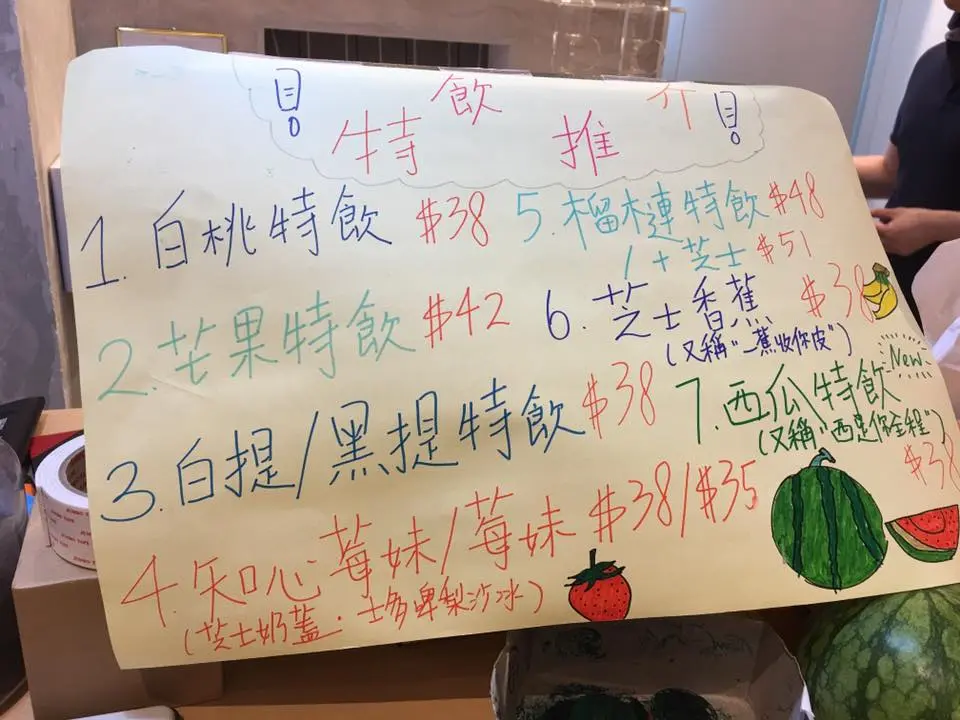 特飲推介
1. 白桃特飲 $38
2. 芒果特飲 $42
3. 白提/黑提特飲 $38
4. 知心莓妹/莓妹 $38/$35
(芝士奶蓋.士多啤梨沙冰)
5. 榴槤特飲 $48
/ + 芝士 $51
6. 芝士香蕉 $38
(又稱"一蕉收你皮")
New
7. 西瓜特飲
(又稱"西是你全程")
$38